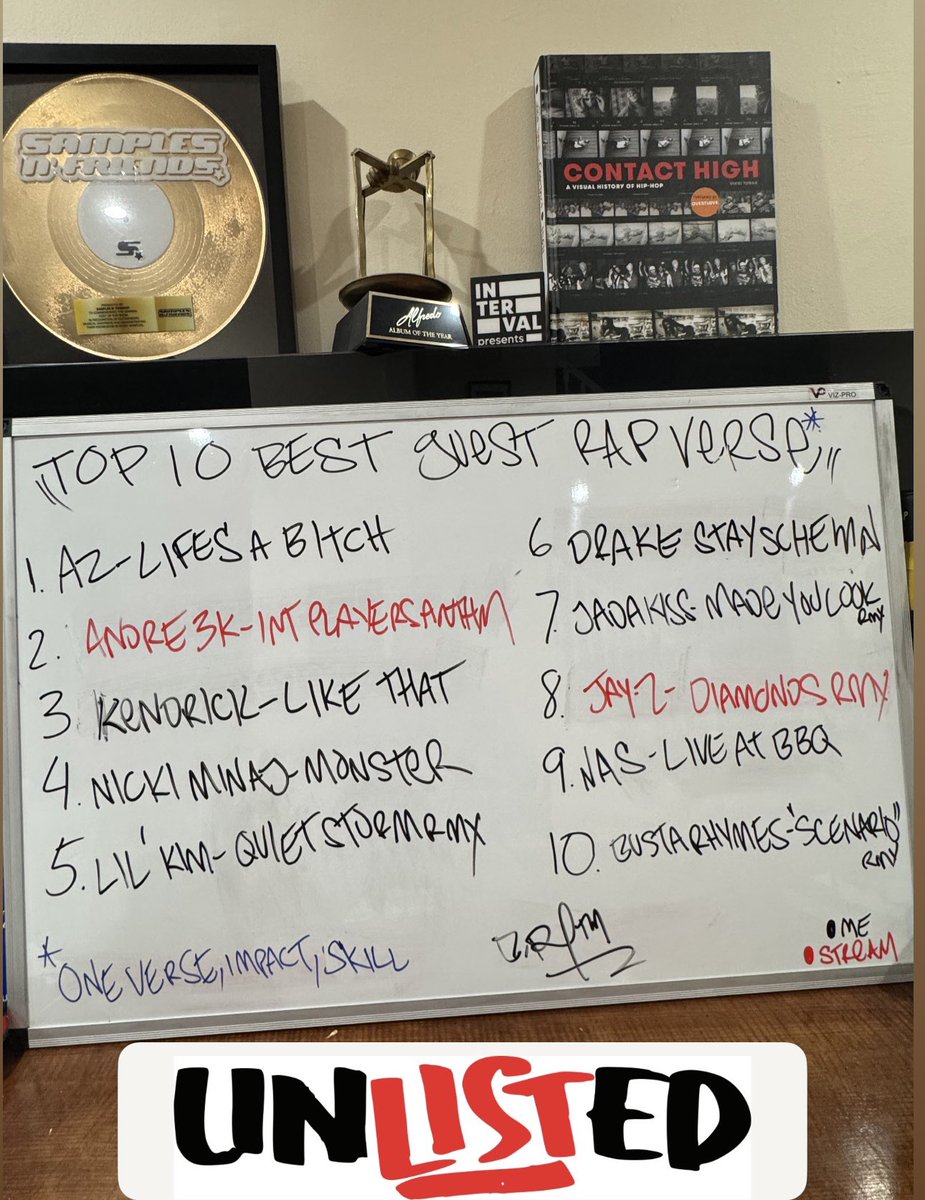 SAMPLES
N' FRIENDS
CONTACT HIGH
A VISUAL HISTORY OF HIP-HOP
VIKKI TOBAK
QUESTLOVE
Alfredo
ALBUM OF THE YEAR
IN
TER
VAL
presents
VIZ-PRO
"TOP 10 BEST GUEST RAP VERSE*"
1. AZ-LIFES A BITCH
2. ANDRE 3K-INT PLAYERS ANTHM
3 KENDRICK-LIKE THAT
4. NICKI MINAJ-MONSTER
5. LIL' KIM-QUIET STORM RMX
6 DRAKE STAY SCHEMN
7. JADAKISS-MADE YOU LOOK
RMX
8. JAY-Z-DIAMONDS RMX
9. NAS-LIVE AT BBQ
10. BUSTA RHYMES-"SCENARIO"
RMX
*ONE VERSE, IMPACT, SKILL
ME
STREAM
UNLISTED